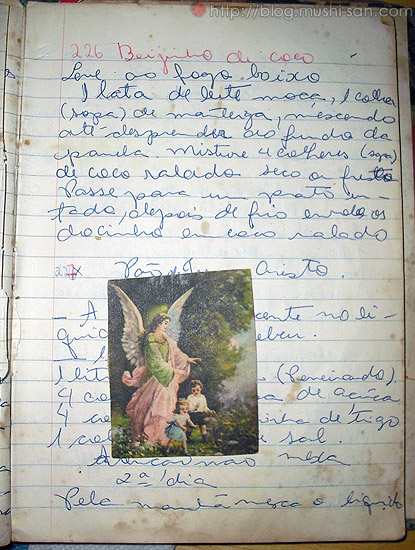 http://blog.mushi-san.com
226 Beijinho de coco
Leve ao fogo baixo
1 lata de leite moça, 1 colher
(sopa) de manteiga, mexendo
até desprender do fundo da
panela. Misture 4 colheres (sopa)
de coco ralado seco ou fresco
Passe para um prato un-
tado, depois de frio enrole os
docinho em coco ralado
227 Pão de Cristo.
- A cente no li-
qui bem.
1 lit (Peneirado)
4 co a de açúca
4 co inha de trigo
1 col e sal.
não mexa
2ª dia
Pela manhã mexa o liquido